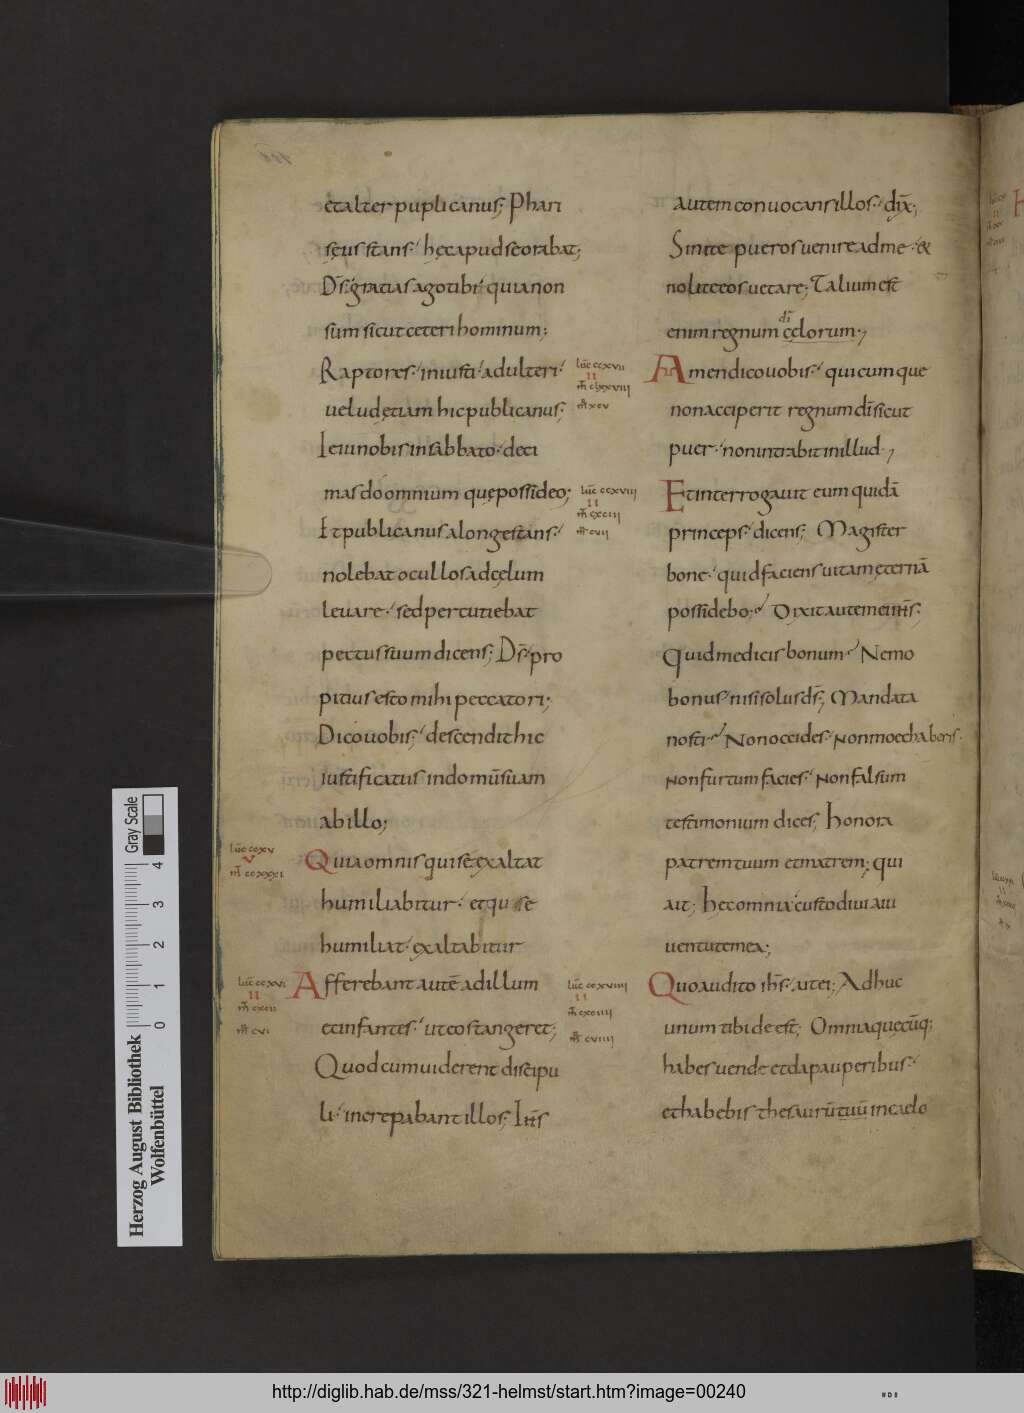 et alter puplicanus; Phari
sęus stans. hęc apud se orabat;
Ds̄. gratias ago tibi. quia non
sum sicut ceteri hominum;
Raptores. iniusti. adulteri.
uelud ętiam hic publicanus;
Ieiuno bis in sabbato. deci
mas do omnium quę possideo;
Et publicanus a longe stans.
nolebat ocullos ad cęlum
leuare. sed percutiebat
pectus suum dicens; Ds̄. pro
pitius esto mihi peccatori;
Dico uobis. descendit hic
iustificatus in domū suam
ab illo;
luc̄ ccxv
v
m̄ ccxxxi
Quia omnis qui se exaltat
humiliabitur. et qui se
humiliat. exaltabitur
luc̄ ccxvi
II
m̄ cxcii
mr̄ cvi
Afferebant autē ad illum
et infantes. ut eos tangeret;
Quod cum uiderent discipu
li. increpabant illos; Ihs̄
autem conuocans illos. dix̄;
Sinite pueros uenire ad me. &
nolite eos uetare; Talium est
enim regnum cęlorum;
dī
luc̄ ccxvii
II
m̄ clxxviii
mr̄ xcv
Amen dico uobis. quicumque
non acciperit regnum dī sicut
puer. non intrabit in illud;
luc̄ ccxviii
II
m̄ cxciii
mr̄ cvii
Et interrogauit eum quidā
princeps. dicens; Magister
bone. quid faciens uitam ęternā
possidebo; Dixit autem ei ihs̄;
Quid me dicis bonum Nemo
bonus. nisi solus ds̄; Mandata
nosti Non occides. Non moechaberis.
Non furtum facies. Non falsum
testimonium dices; Honora
patrem tuum et matrem; qui
ait; Hęc omnia custodiui a iu
uentute mea;
luc̄ ccxviiii
II
m̄ cxciiii
mr̄ cviiii
Quo audito ihs̄. ait ei; Adhuc
unum tibi deest; Omnia quęcūq;
habes uende et da pauperibus.
et habebis thesaurū tuū in caelo
Gray Scale
4
3
2
1
0
Herzog August Bibliothek
Wolfenbüttel
http://diglib.hab.de/mss/321-helmst/start.htm?image=00240